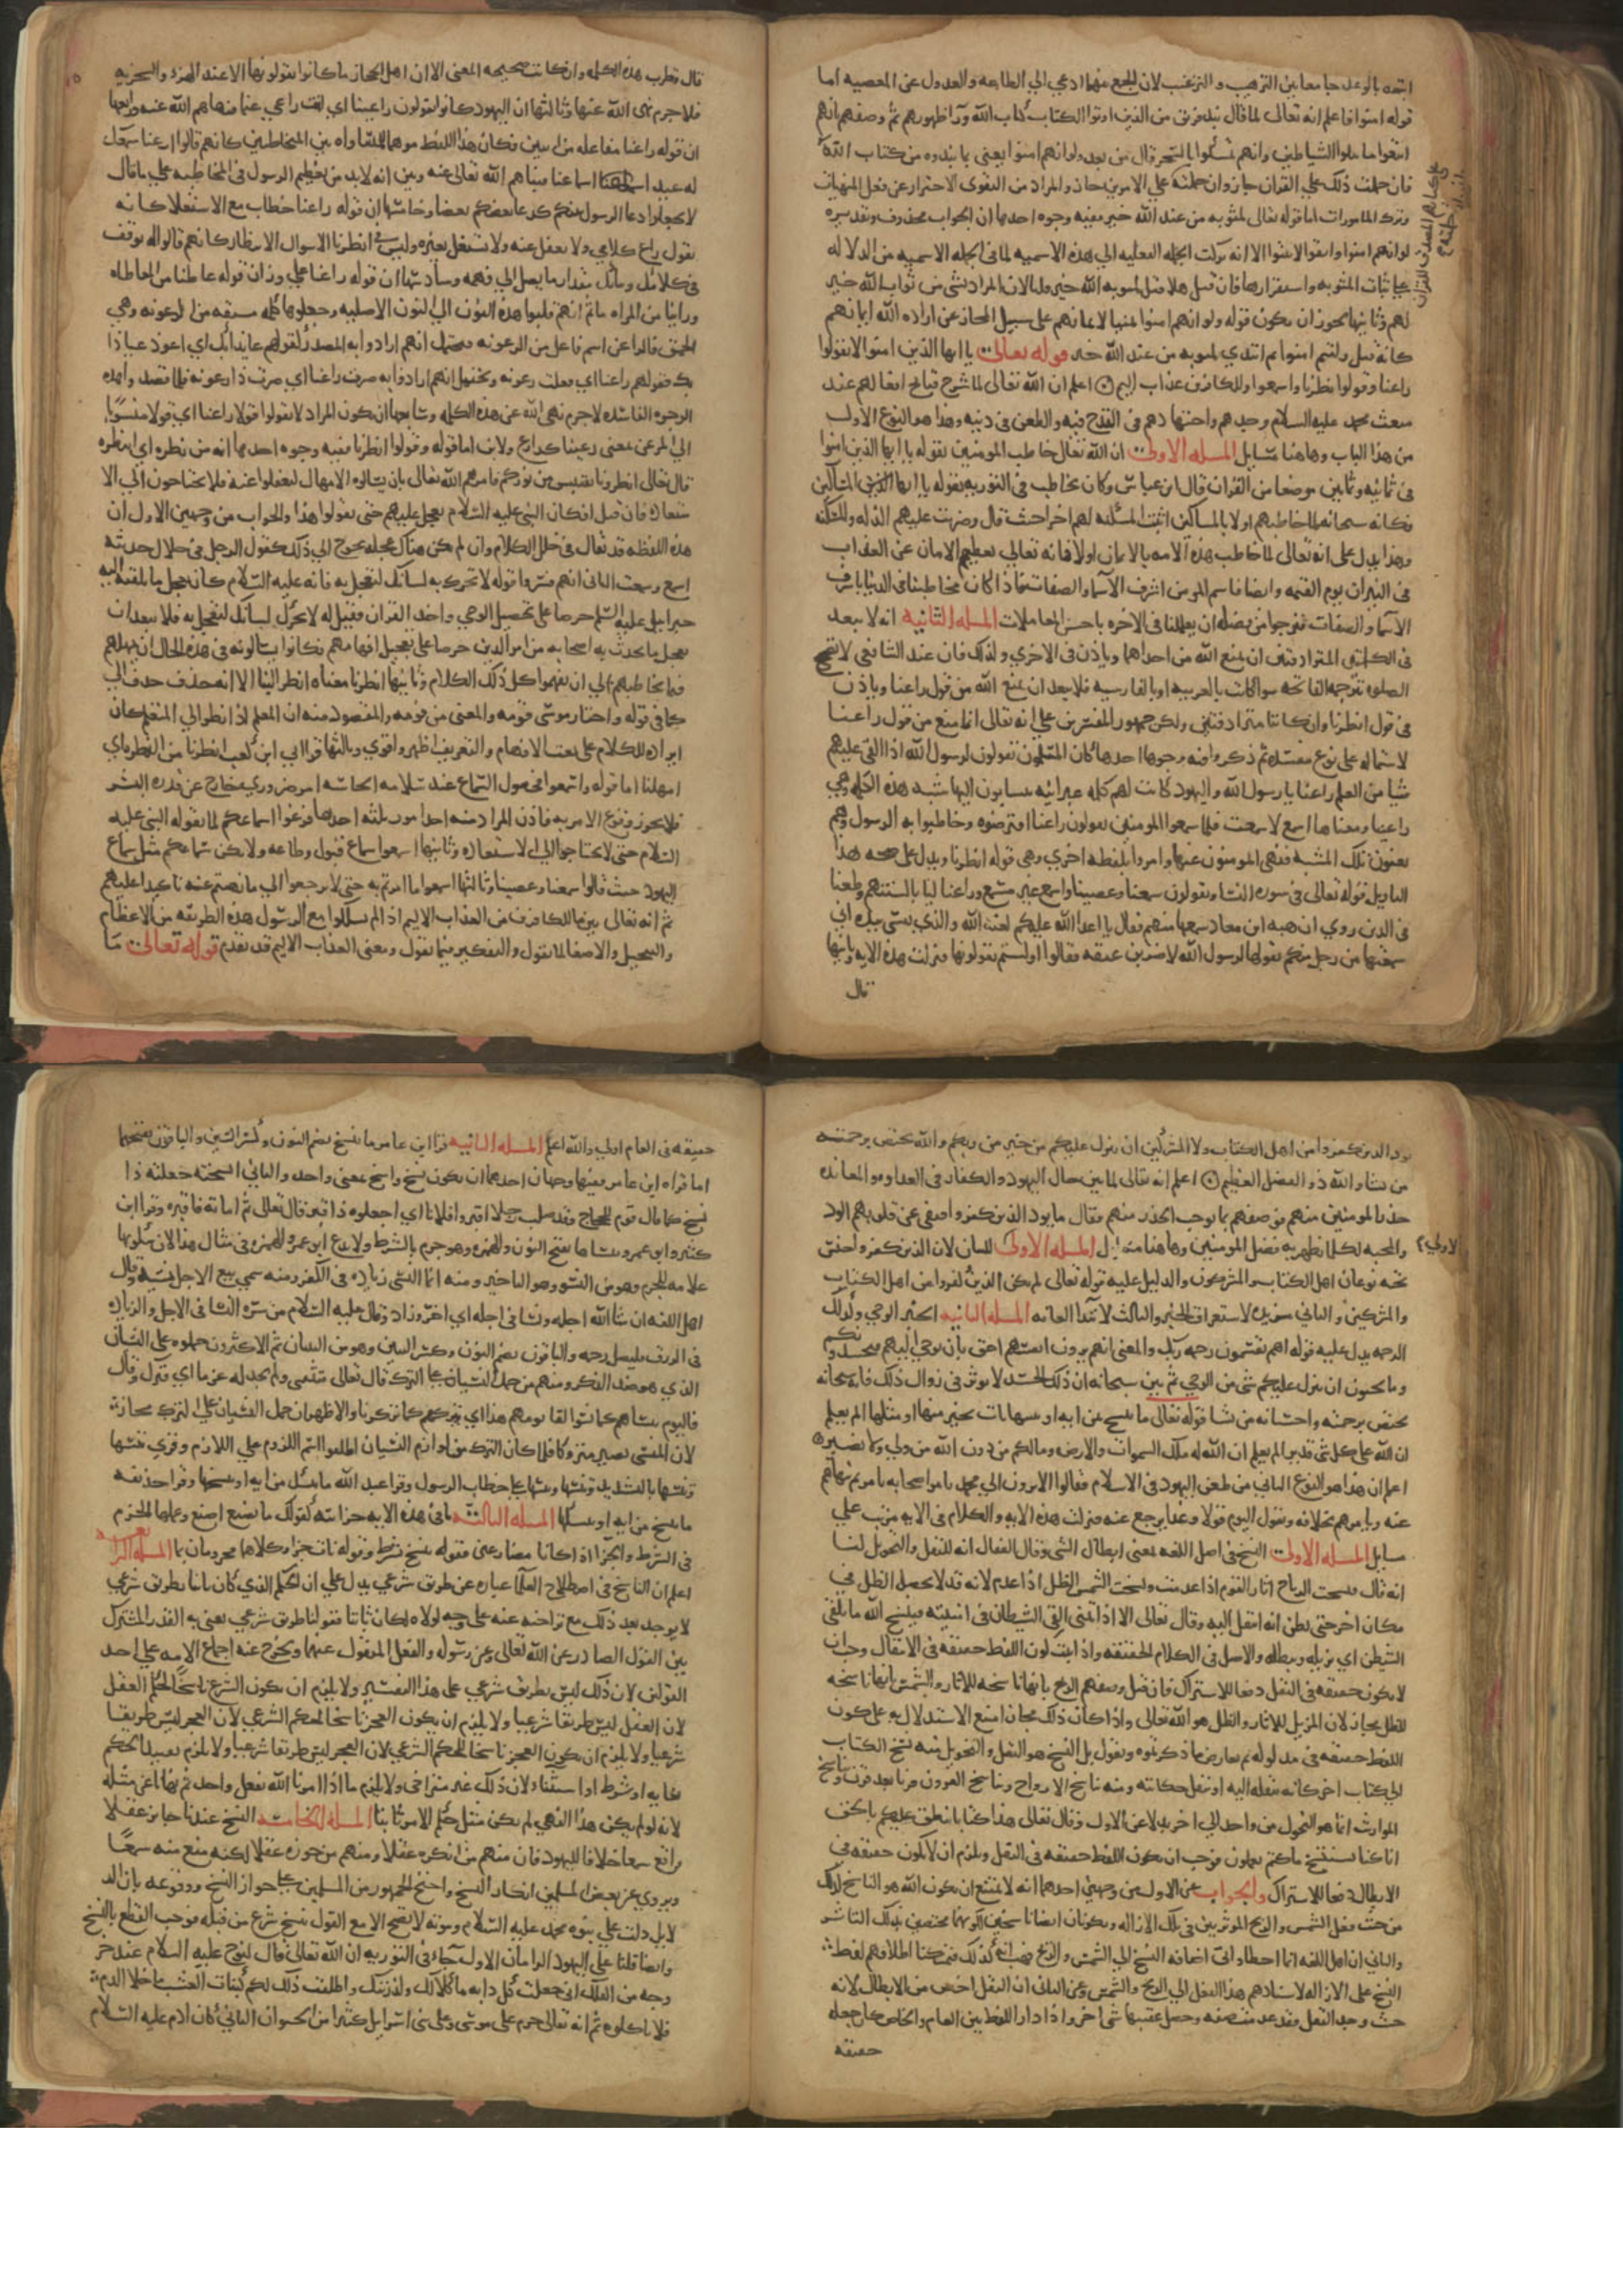 اتبعه بالوعد جامعا بين الترهيب و الترغيب لان الجمع بينهما ادعي الي الطاعه والعدول عن المعصيه اما
قوله امنوا فاعلم انه تعالى لما قال نبذ فريق من الذين اوتوا الكتاب كتاب الله ورآ ظهورهم ثم وصفهم بانهم
اتبعوا ما تتلوا الشياطين وانهم تمسكوا بالسحر قال من بعد ولو انهم امنوا يعني بما نبذوه من كتاب الله
فان حملت ذلك علي القران جاز وان حملته علي الامرين جاز والمراد من التقوى الاحتراز عن فعل المنهيات
وترك المامورات اما قوله تعالى لمثوبه من عند الله خير ففيه وجوه احدها ان الجواب محذوف وتقديره
ولو انهم امنوا واتقوا لاثيبوا الا انه تركت الجمله الفعليه الي هذه الاسميه لما في الجمله الاسميه من الدلاله
علي ثبات المثوبه واستقرارها فان قيل هلا قيل لمثوبه الله خير قلنا لان المراد لشي من ثواب الله خير
لهم وثانيها يجوز ان يكون قوله ولو انهم امنوا تمنيا لايمانهم على سبيل المجاز عن اراده الله ايمانهم
كانه قيل وليتهم امنوا ثم ابتدي لمثوبه من عند الله خير قوله تعالى يا ايها الذين امنوا لا تقولوا
راعنا وقولوا انظرنا واسمعوا وللكافرين عذاب اليم اعلم ان الله تعالى لما شرح قبائح افعالهم عند
مبعث محمد عليه السلام وجدهم واجتهادهم في القدح فيه والطعن في دينه وهذا هو النوع الاول
من هذا الباب وهاهنا مسايل المسله الاولى ان الله تعالى خاطب المومنين بقوله يا ايها الذين امنوا
في ثمانيه وثمانين موضعا من القران قال ابن عباس وكان يخاطب في التوريه بقوله يا ايها المساكين
فكانه سبحانه لما خاطبهم اولا بالمساكين اثبت المسكنه لهم اخرا حيث قال وضربت عليهم الذله والمسكنه
وهذا يدل على انه تعالى لما خاطب هذه الامه بالايمان اولا فانه تعالى يعطيهم الامان عن العذاب
في النيران يوم القيمه وايضا فاسم المومن اشرف الاسما والصفات فاذا كان يخاطبنا في الدنيا باشرف
الاسما والصفات فنرجوا من فضله ان يعاملنا في الاخره باحسن المعاملات المسله الثانيه انه لا يبعد
في الكلمتين المترادفتين ان يمنع الله من احداهما وياذن في الاخري ولذلك فان عند الشافعي لا تصح
الصلوه بترجمه الفاتحه سوا كانت بالعربيه او بالفارسيه فلا يبعد ان يمنع الله من قول راعنا وياذن
في قول انظرنا وان كانتا مترادفتين ولكن جمهور المفسرين علي انه تعالى انما منع من قول راعنا
لاشتماله على نوع مفسده ثم ذكروا فيه وجوها احدها كان المسلمون يقولون لرسول الله اذا القى عليهم
شيا من العلم راعنا يا رسول الله واليهود كانت لهم كلمه عبرانيه يتسابون بها تشبه هذه الكلمه وهي
راعينا ومعناها اسمع لا سمعت فلما سمعوا المومنين يقولون راعنا افترصوه وخاطبوا به الرسول وهم
يعنون تلك المسبه فنهي المومنون عنها وامروا بلفظه اخري وهي قوله انظرنا ويدل على صحه هذا
التاويل قوله تعالى في سوره النسا ويقولون سمعنا وعصينا واسمع غير مسمع وراعنا ليا بالسنتهم وطعنا
في الدين روي ان سعد ابن معاذ سمعها منهم فقال يا اعدا الله عليكم لعنة الله والذي نفسي بيده لئن
سمعتها من رجل منكم يقولها لرسول الله لاضربن عنقه فقالوا اولستم تقولونها فنزلت هذه الايه وثانيها
قال
قال قطرب هذه الكلمه وان كانت صحيحه المعنى الا ان اهل الحجاز ما كانوا يقولونها الا عند الهزء والسخريه
فلا جرم نهى الله عنها وثالثها ان اليهود كانوا يقولون راعينا اي انت راعي غنمنا فنهاهم الله عنه ورابعها
ان قوله راعنا مفاعله من اثنين فكان هذا اللفظ موهما للمساواه بين المخاطبين كانهم قالوا ارعنا سمعك
لنرعيك اسماعنا فنهاهم الله تعالى عنه وبين انه لا بد من تعظيم الرسول في المخاطبه علي ما قال
لا تجعلوا دعا الرسول بينكم كدعا بعضكم بعضا وخامسها ان قوله راعنا خطاب مع الاستعلا كانه
يقول راع كلامي ولا تغفل عنه ولا تشتغل بغيره وليس في انظرنا الا سوال الانتظار كانهم قالوا له توقف
في كلامك وبيانك مقدار ما يصل الي فهمه وسادسها ان قوله راعنا علي وزن قوله عاطنا من المعاطاه
ورامنا من المراماه ثم انهم قلبوا هذه النون الي النون الاصليه وجعلوها كلمه مشتقه من الرعونه وهي
الحمق فالراعن اسم فاعل من الرعونه فيحتمل انهم ارادوا به المصدر كقولهم عايذا بك اي اعوذ عياذا
بك فقولهم راعنا اي فعلت رعونه ويحتمل انهم ارادوا به صرت راعنا اي صرت ذا رعونه فلما قصدوا هذه
الوجوه الفاسده لا جرم نهى الله عن هذه الكلمه وسابعها ان يكون المراد لا تقولوا قولا راعنا اي قولا منسوبا
الي الرعن بمعنى رعينا كدارع ولابن اما قوله وقولوا انظرنا ففيه وجوه احدها انه من نظره اي انتظره
قال تعالى انظرونا نقتبس من نوركم فامرهم الله تعالى بان يسالوه الامهال لينقلوا عنه فلا يحتاجون الى الا
ستعاده فان قيل افكان النبي عليه السلام يعجل عليهم حتى يقولوا هذا والجواب من وجهين الاول ان
هذه اللفظه قد تقال في خلل الكلام وان لم يكن هناك عجله تحوج الي ذلك كقول الرجل في خلال حديثه
اسمع وسمعت الثاني انهم فسروا قوله لا تحرك به لسانك لتعجل به فانه عليه السلام كان يعجل ما يلقيه اليه
جبرايل عليه السلم حرصا على تحصيل الوحي واخذ القران فقيل له لا تحرك لسانك لتعجل به فلا يبعد ان
يعجل ما يحدث به اصحابه من امر الدين حرصا على تعجيل افهامهم فكانوا يسالونه في هذه الحال ان يمهلهم
فيما يخاطبهم الي ان يفهموا كل ذلك الكلام وثانيها انظرنا معناه انظر الينا الا انه حذف حرف الي
كما في قوله واختار موسى قومه والمعنى من قومه والمقصود منه ان المعلم اذا نظر الي المتعلم كان
ايراده للكلام على نعت الافهام والتعريف اظهر واقوي وثالثها قرا ابي ابن كعب انظرنا من النظره اي
امهلنا اما قوله واسمعوا فحصول السماع عند سلامه الحاسه امر ضروري خارج عن قدره البشر
فلا يجوز وقوع الامر به فاذن المراد منه احد امور ثلثه احدها فرغوا اسماعكم لما يقوله النبي عليه
السلام حتى لا تحتاجوا الي الاستعاده وثانيها اسمعوا سماع قبول وطاعه ولا يكن سماعكم مثل سماع
اليهود حيث قالوا سمعنا وعصينا وثالثها اسمعوا ما امرتم به حتى لا ترجعوا الي ما نهيتم عنه تاكيدا عليهم
ثم انه تعالى بين ما للكافرين من العذاب الاليم اذا لم يسلكوا مع الرسول هذه الطريقه من الاعظام
والتبجيل والاصغا لما يقول والتفكير فيما يقول ومعنى العذاب الاليم قد تقدم قوله تعالى ما
يود الذين كفروا من اهل الكتاب ولا المشركين ان ينزل عليكم من خير من ربكم والله يختص برحمته
من يشا والله ذو الفضل العظيم اعلم انه تعالى لما بين حال اليهود والكفار في العداوه والمعانده
حذر المومنين منهم فوصفهم بما يوجب الحذر منهم فقال ما يود الذين كفروا فنفى عن قلوبهم الود
والمحبه لكل ما يظهر به فضل المومنين وهاهنا مسايل المسله الاولى من للبيان لان الذين كفروا جنس
تحته نوعان اهل الكتاب والمشركون والدليل عليه قوله تعالى لم يكن الذين كفروا من اهل الكتاب
والمشركين والثاني مزيده لاستغراق الخير والثالث لابتدا الغايه المسله الثانيه الخير الوحي وكذلك
الرحمه يدل عليه قوله اهم يقسمون رحمه ربك والمعنى انهم يرون انفسهم احق بان يوحي اليهم فيحسدونكم
وما يحبون ان ينزل عليكم شي من الوحي ثم بين سبحانه ان ذلك الحسد لا يوثر في زوال ذلك فانه سبحانه
يختص برحمته واحسانه من يشا قوله تعالى ما ننسخ من ايه او ننسها نات بخير منها او مثلها الم تعلم
ان الله على كل شي قدير الم تعلم ان الله له ملك السموات والارض وما لكم من دون الله من ولي ولا نصير
اعلم ان هذا هو النوع الثاني من طعن اليهود في الاسلام فقالوا الا ترون الي محمد يامر اصحابه بامر ثم ينهاهم
عنه ويامرهم بخلافه ويقول اليوم قولا وغدا يرجع عنه فنزلت هذه الايه والكلام في الايه مرتب علي
مسايل المسله الاولى النسخ في اصل اللغه بمعنى ابطال الشي وقال القفال انه للنقل والتحويل لنا
انه يقال نسخت الرياح اثار القوم اذا عدمت ونسخت الشمس الظل اذا عدم لانه قد لا يحصل الظل في
مكان اخر حتى يظن انه انتقل اليه وقال تعالى الا اذا تمنى القى الشيطان في امنيته فينسخ الله ما يلقي
الشيطن اي يزيله ويبطله والاصل في الكلام الحقيقه واذا ثبت كون اللفظ حقيقه في الابطال وجب ان
لا يكون حقيقه في النقل دفعا للاشتراك فان قيل وصفهم الريح بانها ناسخه للاثار والشمس بانها ناسخه
للظل مجاز لان المزيل للاثار والظل هو الله تعالى واذا كان ذلك مجازا امتنع الاستدلال به على كون
اللفظ حقيقه في مدلوله ثم نعارض ما ذكرتموه ونقول بل النسخ هو النقل والتحويل ومنه نسخ الكتاب
الي كتاب اخر كانه ينقله اليه او ينقل حكايته ومنه تناسخ الارواح وتناسخ القرون قرنا بعد قرن وتناسخ
المواريث انما هو التحول من واحد الي اخر بدلا عن الاول وقال تعالى هذا كتابنا ينطق عليكم بالحق
انا كنا نستنسخ ما كنتم تعملون فوجب ان يكون اللفظ حقيقه في النقل ويلزم ان لا يكون حقيقه في
الابطال دفعا للاشتراك والجواب عن الاول من وجهين احدهما انه لا يمتنع ان يكون الله هو الناسخ لذلك
من حيث فعل الشمس والريح الموثرين في تلك الازاله ويكونان ايضا ناسخين لكونهما مختصين بذلك التاثير
والثاني ان اهل اللغه انما اخطاوا في اضافه النسخ الي الشمس والريح فهب انه كذلك فتمسكنا اطلاقهم لفظ
النسخ على الازاله لاسنادهم هذا الفعل الي الريح والشمس وعن الثاني ان النقل اخص من الابطال لانه
حيث وجد النقل فقد عدمت صفه وحصل عقيبها شي اخر واذا دار اللفظ بين العام والخاص كان جعله
حقيقه
حقيقه في العام اولي والله اعلم المسله الثانيه قرا ابن عامر ما ننسخ بضم النون وكسر السين والباقون بفتحهما
اما قراه ابن عامر ففيها وجهان احدهما ان يكون نسخ وانسخ بمعنى واحد والثاني انسخته جعلته ذا
نسخ كما قال قوم للحجاج وقد صلب رجلا اقبروا فلانا اي اجعلوه ذا قبر قال تعالى ثم اماته فاقبره وقرا ابن
كثير وابو عمرو ننساها بفتح النون والهمزه وهو جزم بالشرط ولا يدع ابو عمرو الهمزه في مثل هذا لان سكونها
علامه للجزم وهو من النسو وهو التاخير ومنه انما النسي زياده في الكفر ومنه سمي بيع الاجل نسيه وقال
اهل اللغه انسا الله اجله ونسا في اجله اي اخر وزاد وقال عليه السلام من سره النسا في الاجل والزياده
في الرزق فليصل رحمه والباقون بضم النون وكسر السين وهو من النسيان ثم الاكثرون حملوه على النسيان
الذي هو ضد الذكر ومنهم من حمل النسيان على الترك قال تعالى فنسي ولم نجد له عزما اي فترك وقال
فاليوم ننساهم كما نسوا لقا يومهم هذا اي نتركهم كما تركوا والاظهر ان حمل النسيان على الترك مجاز
لان المنسي يصير متروكا فلما كان الترك من لوازم النسيان اطلقوا اسم اللزوم علي اللازم وقري ننسها
وننسها بالتشديد وتنسها وتنسها علي خطاب الرسول وقرا عبد الله ما ننسك من ايه او ننسخها وقرا حذيفه
ما ننسخ من ايه او ننسكها المسله الثالثه ما في هذه الايه جزائيه كقولك ما تصنع اصنع وعملها الجزم
في الشرط والجزا اذا كانا مضارعين فقوله ننسخ شرط وقوله نات جزا وكلاهما مجزومان بما المسله الرابعه
اعلم ان الناسخ في اصطلاح العلما عباره عن طريق شرعي يدل علي ان الحكم الذي كان ثابتا بطريق شرعي
لا يوجد بعد ذلك مع تراخيه عنه على وجه لولاه لكان ثابتا فقولنا طريق شرعي يعني به القدر المشترك
بين القول الصادر عن الله تعالى وعن رسوله والفعل المنقول عنهما ويخرج عنه اجماع الامه علي احد
القولين لان ذلك ليس بطريق شرعي على هذا التفسير ولا يلزم ان يكون الشرع ناسخا لحكم العقل
لان العقل ليس طريقا شرعيا ولا يلزم ان يكون العجز ناسخا لحكم الشرعي لان العجز ليس طريقا
شرعيا ولا يلزم ان يكون العجز ناسخا للحكم الشرعي لان العجز ليس طريقا شرعيا ولا يلزم تقييد الحكم
بغايه او شرط او استثناء لان ذلك غير متراخي ولا يلزم ما اذا امرنا الله بفعل واحد ثم نهانا عن مثله
لانه لو لم يكن هذا النهي لم يكن مثل حكم الامر ثابتا المسله الخامسه النسخ عندنا جايز عقلا
واقع سمعا خلافا لليهود فان منهم من انكره عقلا ومنهم من جوزه عقلا لكنه منع منه سمعا
ويروي عن بعض المسلمين انكار النسخ واحتج الجمهور من المسلمين على جواز النسخ ووقوعه بان الد
لايل دلت على نبوه محمد عليه السلام ونبوته لا تصح الا مع القول بنسخ شرع من قبله فوجب القطع بالنسخ
وايضا قلنا على اليهود الزامان الاول جاء في التوريه ان الله تعالى قال لنوح عليه السلام عند خر
وجه من الفلك اني جعلت كل دابه ماكلا لك ولذريتك واطلقت ذلك لكم كنبات العشب ما خلا الدم
فلا تاكلوه ثم انه تعالى حرم على موسى وعلى بني اسرايل كثيرا من الحيوان الثاني كان ادم عليه السلام